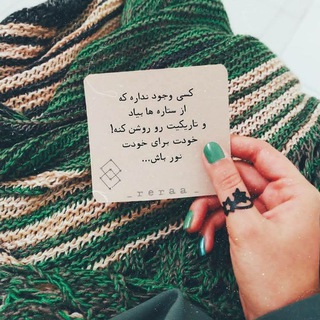 کسی وجود نداره که
از ستاره ها بیاد
و تاریکیت رو روشن کنه!
خودت برای خودت
نور باش...
_ r e r a a _